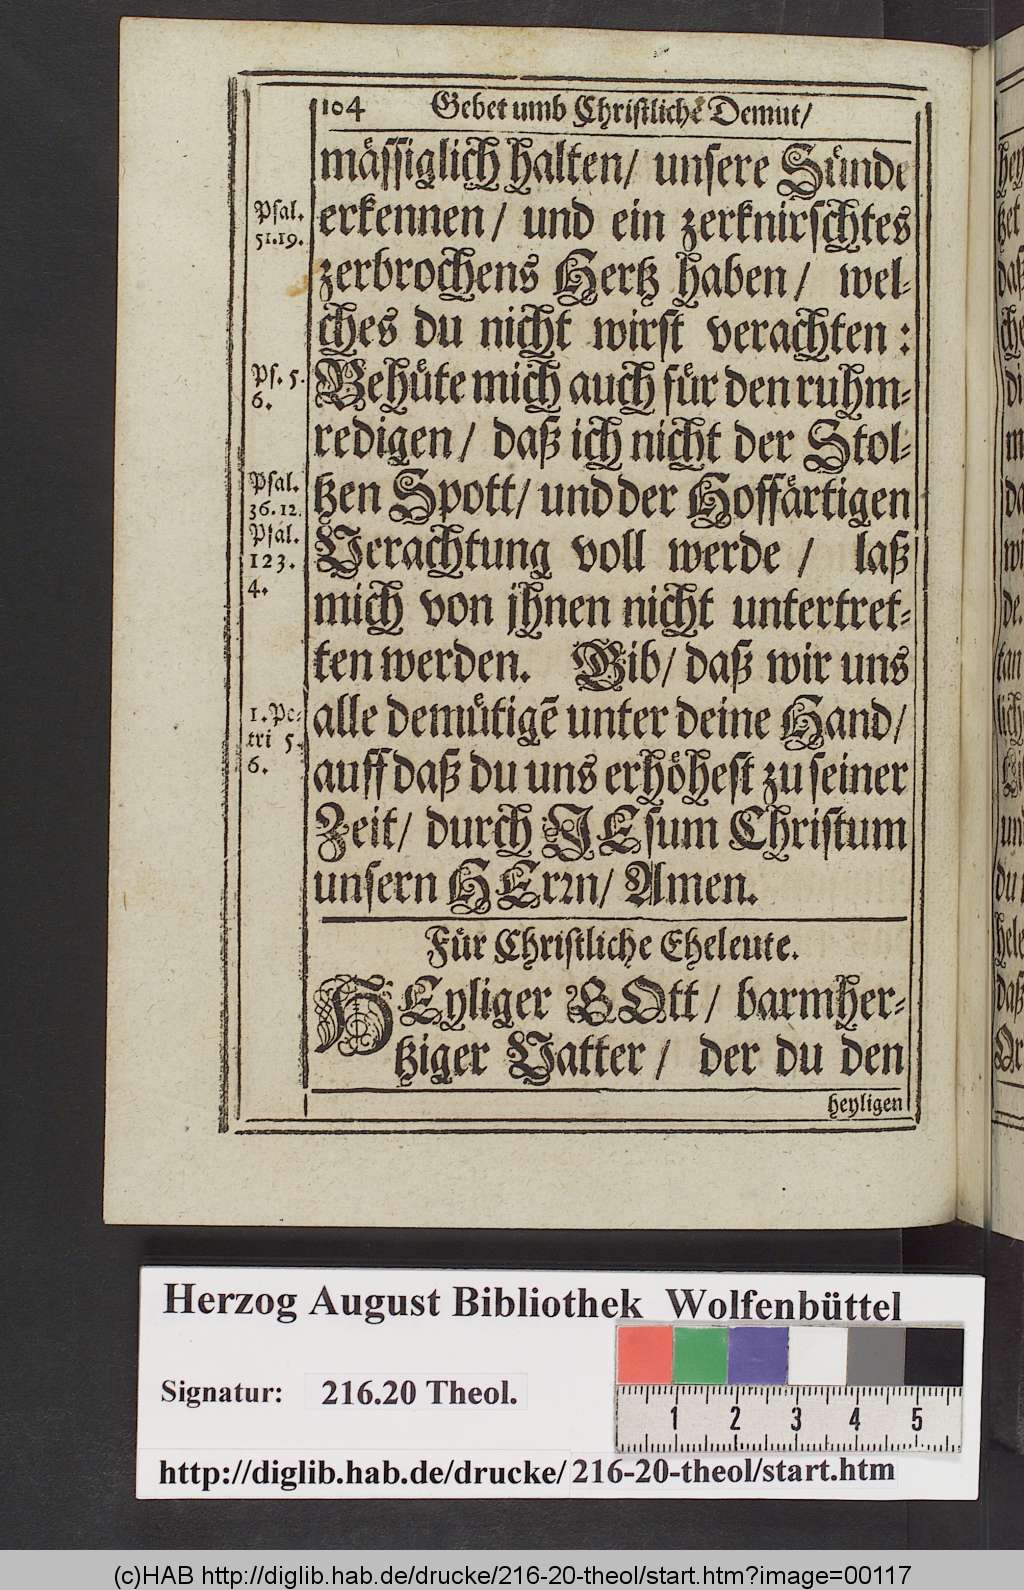 104 Gebet umb Christlichẽ Demut/
mässiglich halten/ unsere Sünde
erkennen/ und ein zerknirschtes
Psal.
51.19.
zerbrochens Hertz haben/ wel-
ches du nicht wirst verachten:
Behüte mich auch für den ruhm-
Ps. 5.
6.
redigen/ daß ich nicht der Stol-
tzen Spott/ und der Hoffärtigen
Psal.
36.12.
Verachtung voll werde/ laß
Psal.
123.
4.
mich von jhnen nicht untertret-
ten werden. Gib/ daß wir uns
alle demütigẽ unter deine Hand/
1.Pe-
tri 5.
6.
auff daß du uns erhöhest zu seiner
Zeit/ durch JEsum Christum
unsern HErrn/ Amen.
Für Christliche Eheleute.
HEyliger GOtt/ barmher-
tziger Vatter/ der du den
heyligen
Herzog August Bibliothek Wolfenbüttel
Signatur: 216.20 Theol.
1 2 3 4 5
http://diglib.hab.de/drucke/216-20-theol/start.htm
(c)HAB http://diglib.hab.de/drucke/216-20-theol/start.htm?image=00117